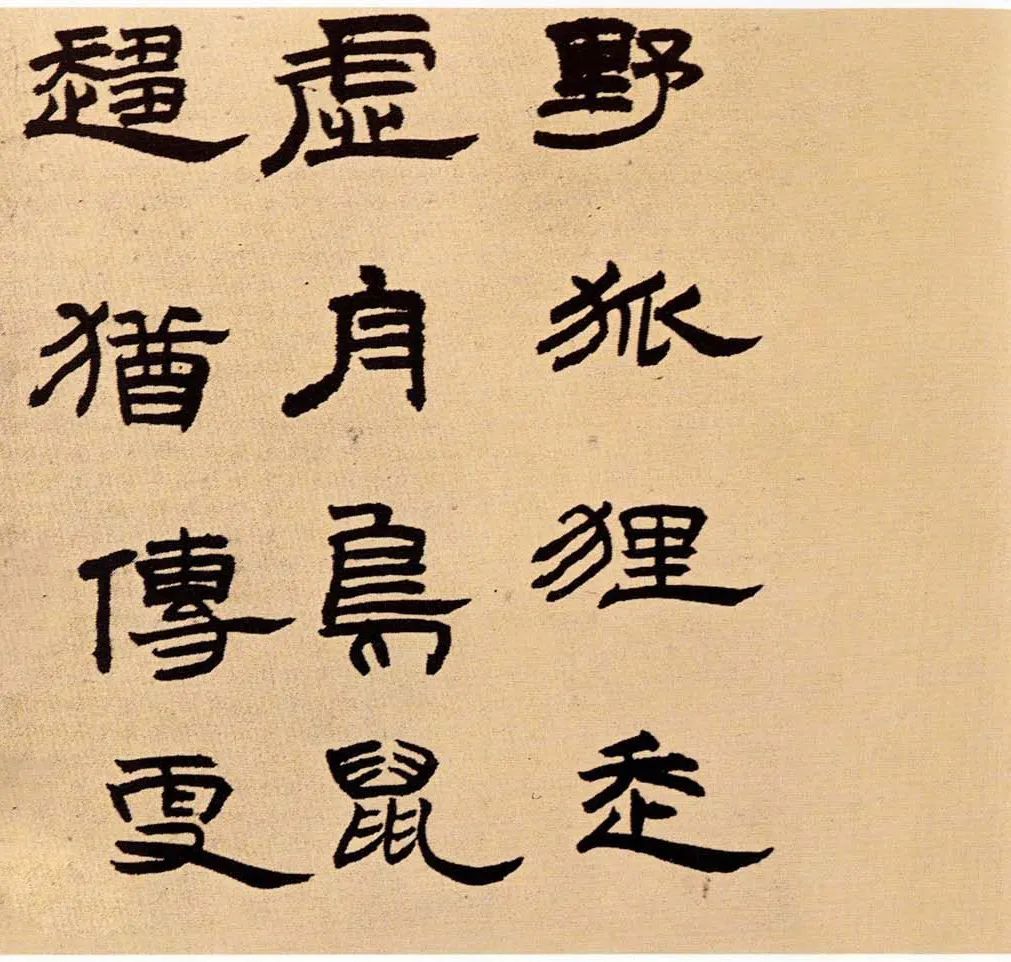 野狐狸走
虛舟鳥鼠
趨猶傳